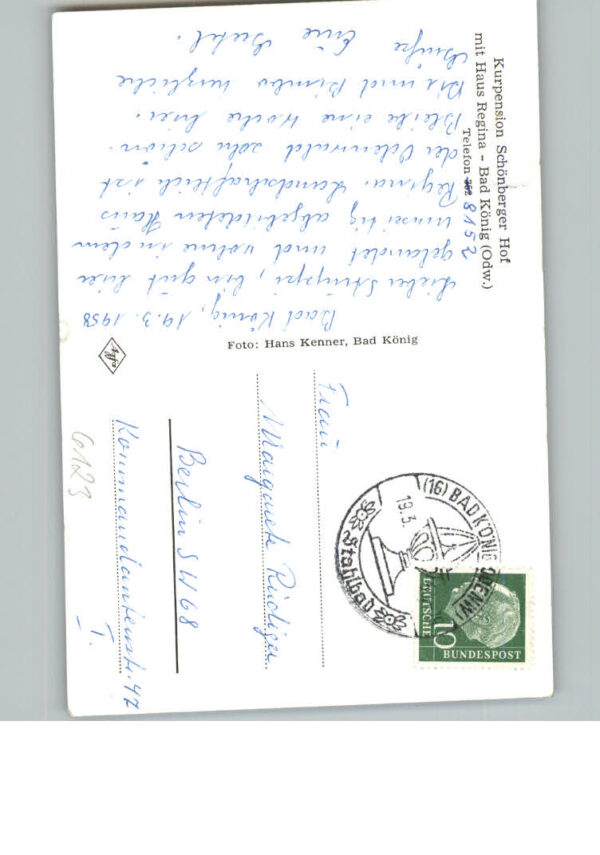 Kurpension Schönberger Hof
mit Haus Regina - Bad König (Odw.)
Telefon 8152
Bad König, 19.3.1958
Lieber Struppi, bin gut hier
gelandet und wohne in dem
umseitig abgebildeten Haus
Regina. Landschaftlich ist
der Odenwald sehr schön.
Bleibe eine Woche hier.
Dir und Bimbo herzliche
Grüße Eure
Foto: Hans Kenner, Bad König
Agfa
Frau
Margarete Rüdiger
Berlin SW 68
Kommandantenstr. 47
I.
6123
(16) BAD KÖNIG (ODENW)
19.3.
Stahlbad
10
DEUTSCHE
BUNDESPOST